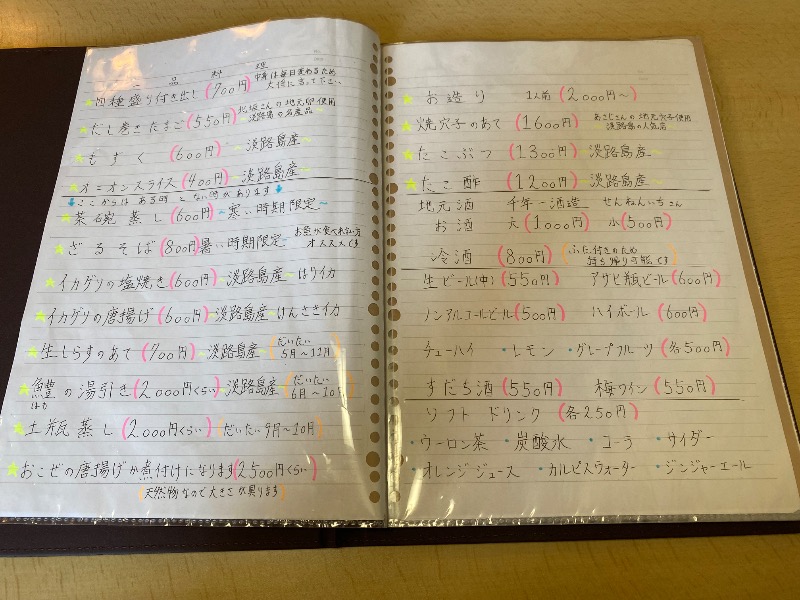 一品料理
四種盛り付き出し(700円) 中身は毎日変わるため
大将に言って下さい
だし巻きたまご(550円) 北坂さんの地元卵使用
~淡路島の名産品
もずく(600円)~淡路島産~
オニオンスライス(400円)~淡路島産~
↓ここからはある時とない時があります↓
茶碗蒸し(600円)~寒い時期限定~
ざるそば(800円)暑い時期限定~ お魚が食べれない方
オススメです
イカゲソの塩焼き(600円)~淡路島産~はりイカ
イカゲソの唐揚げ(600円)~淡路島産~けんさきイカ
生しらすのあて(700円)~淡路島産~(だいたい
5月~11月)
鱧の湯引き(2000円くらい)~淡路島産~(だいたい
6月~10月)
はも
土瓶蒸し(2000円くらい)(だいたい9月~10月)
おこぜの唐揚げか煮付けになります(2500円くらい)
(天然物なので大きさが異ります)
お造り 1人前(2000円~)
焼穴子のあて(1600円) あさじさんの地元穴子使用
淡路島の人気店
たこぶつ(1300円)~淡路島産~
たこ酢(1200円)~淡路島産~
地元酒 千年一酒造 せんねんいちさん
お酒 大(1000円) 小(500円)
冷酒(800円)(ふた付きのため
持ち帰り可能です)
生ビール(中)(550円) アサヒ瓶ビール(600円)
ノンアルコールビール(500円) ハイボール(600円)
チューハイ ・レモン ・グレープフルーツ(各500円)
すだち酒(550円) 梅ワイン(550円)
ソフトドリンク(各250円)
・ウーロン茶 ・炭酸水 ・コーラ ・サイダー
・オレンジジュース ・カルピスウォーター ・ジンジャーエール